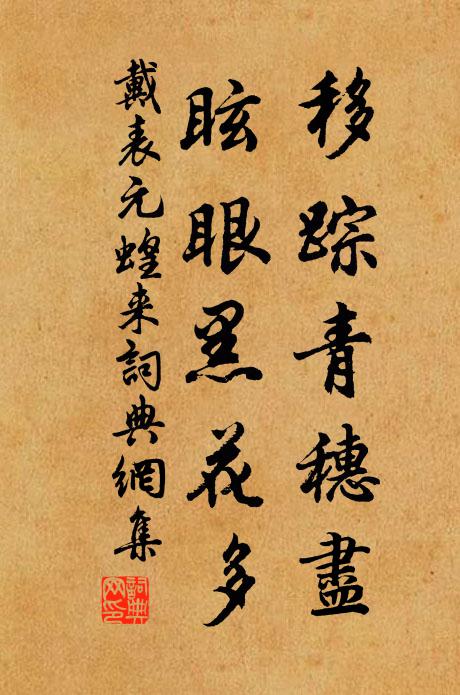 移踪青穗盡
眩眼黑花多
戴表元蝗来詞典網集
詞典
网印